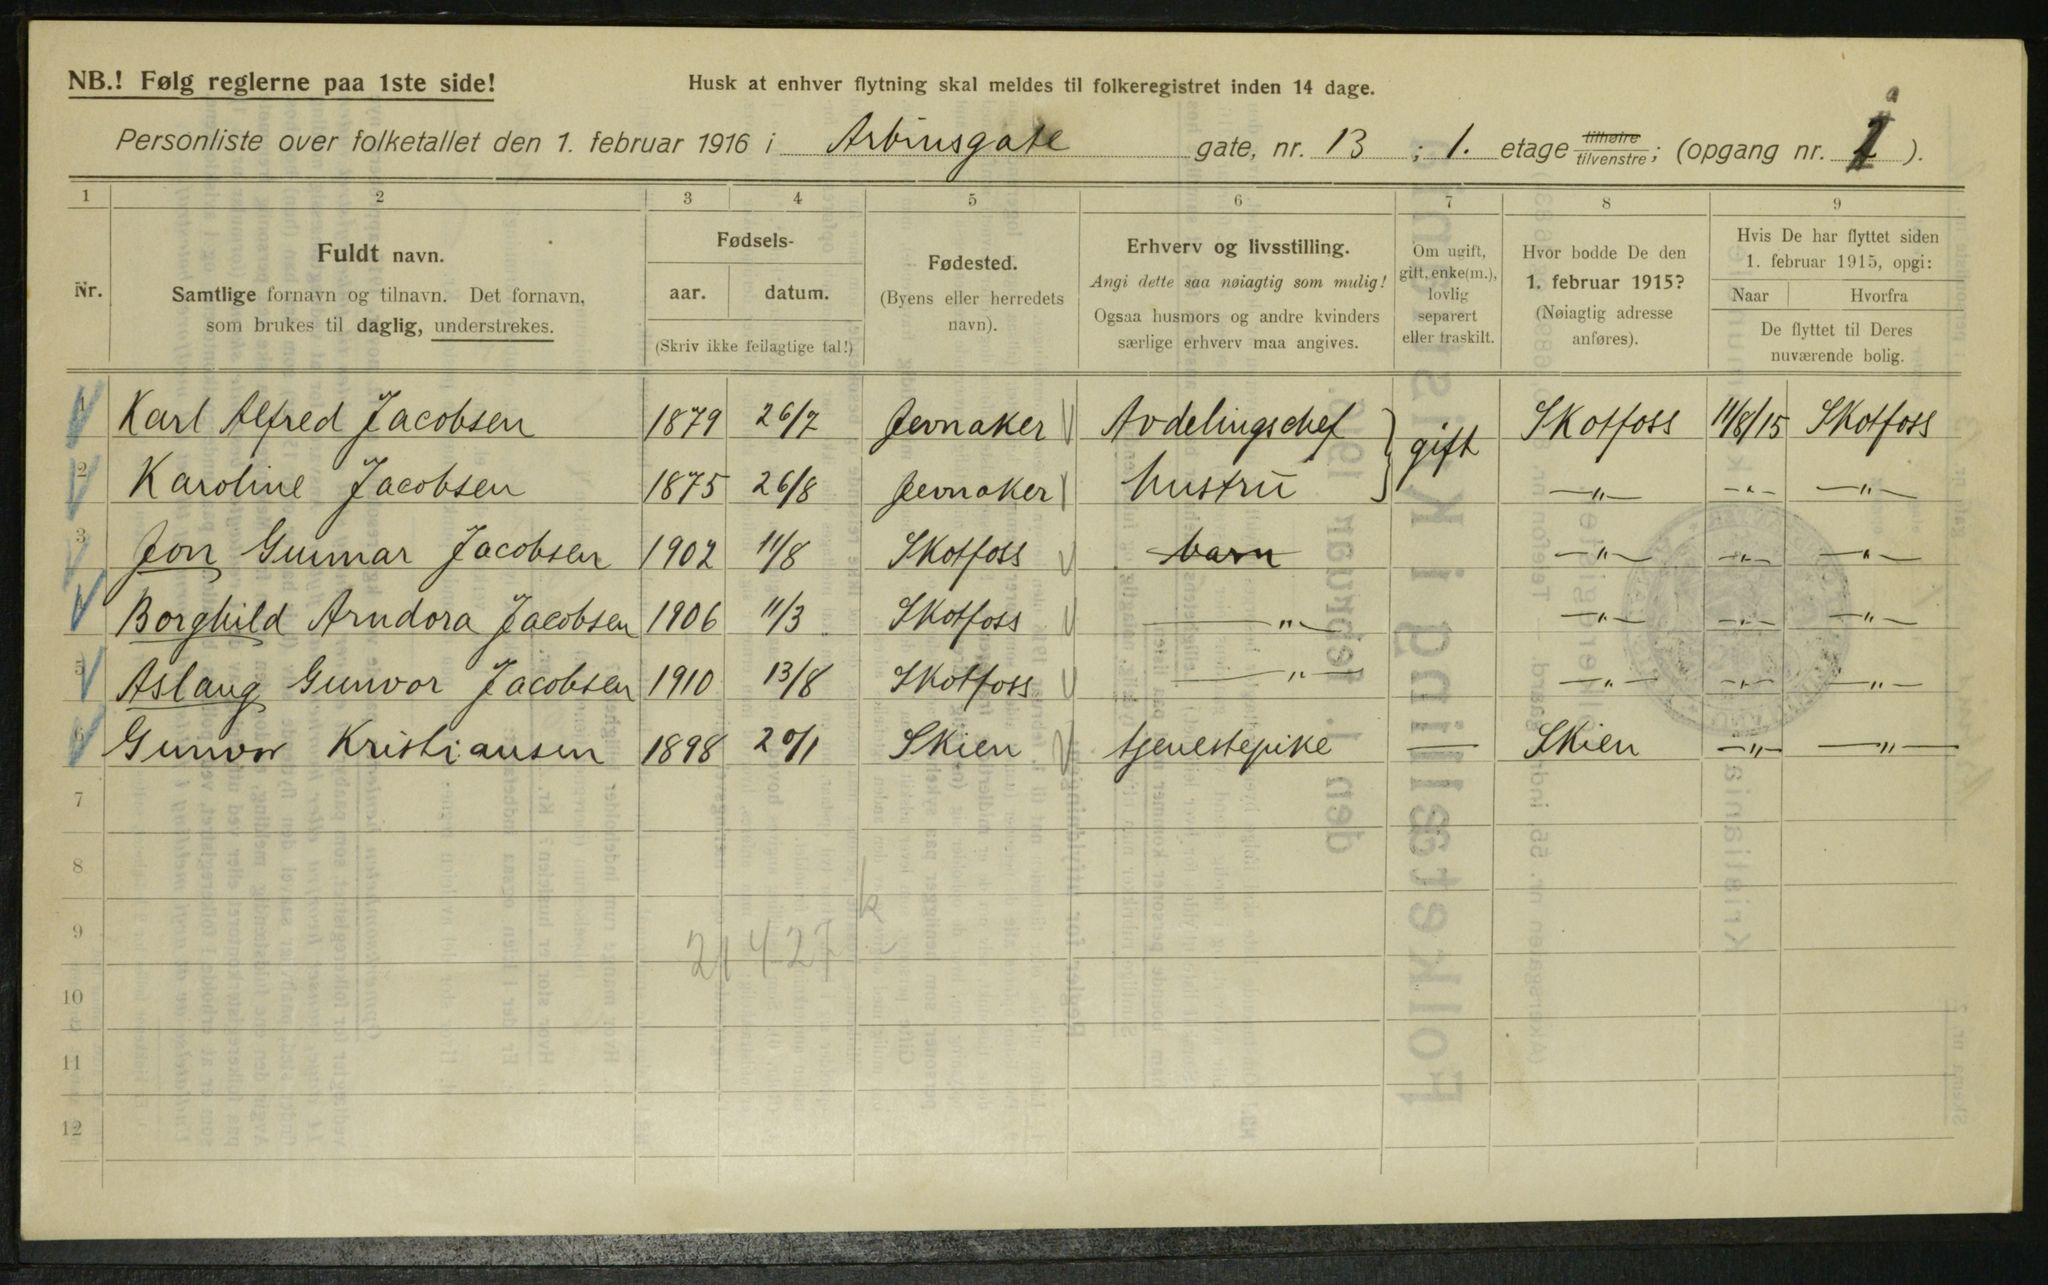 NB.! Følg reglerne paa 1ste side!
Husk at enhver flytning skal meldes til folkeregistret inden 14 dage.
Personliste over folketallet den 1. februar 1916 i Arbinsgate gate, nr. 13 ; 1. etage tilhøire tilvenstre; (opgang nr. 1 ).
1 2 3 4 5 6 7 8 9
Nr.
Fuldt navn.
Samtlige fornavn og tilnavn. Det fornavn,
som brukes til daglig, understrekes.
Fødsels-
aar. datum.
(Skriv ikke feilagtige tal!)
Fødested.
(Byens eller herredets
navn).
Erhverv og livsstilling.
Angi dette saa nøiagtig som mulig!
Ogsaa husmors og andre kvinders
særlige erhverv maa angives.
Om ugift,
gift, enke(m.),
lovlig
separert
eller fraskilt.
Hvor bodde De den
1. februar 1915?
(Nøiagtig adresse
anføres).
Hvis De har flyttet siden
1. februar 1915, opgi:
Naar Hvorfra
De flyttet til Deres
nuværende bolig.
1 Karl Alfred Jacobsen 1879 26/7 Jevnaker Avdelingschef gift Skotfoss 11/8/15 Skotfoss
2 Karoline Jacobsen 1875 26/8 Jevnaker hustru —"— —"— —"—
3 Jon Gunnar Jacobsen 1902 11/8 Skotfoss barn —"— —"— —"—
4 Borghild Arndora Jacobsen 1906 11/3 Skotfoss —"— —"— —"— —"—
5 Aslaug Gunvor Jacobsen 1910 13/8 Skotfoss —"— —"— —"— —"—
6 Gunvor Kristiansen 1898 20/1 Skien tjenestepike — Skien —"— —"—
7
8
9
21427
10
11
12